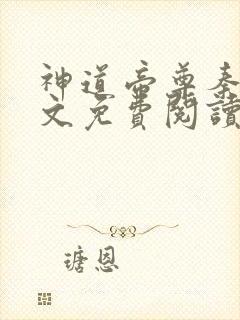 神道帝尊秦
文免費閱讀
瑭恩